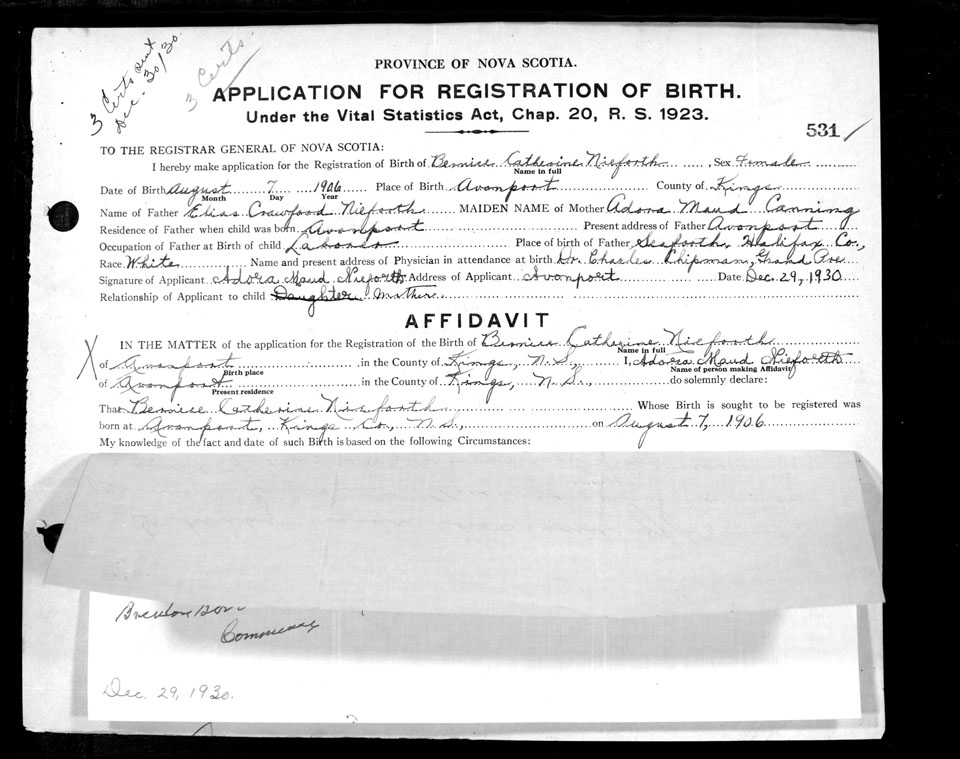 3 Certs sent
Dec. 30/30.
3 Certs.
PROVINCE OF NOVA SCOTIA.
APPLICATION FOR REGISTRATION OF BIRTH.
Under the Vital Statistics Act, Chap. 20, R. S. 1923.
531
TO THE REGISTRAR GENERAL OF NOVA SCOTIA:
I hereby make application for the Registration of Birth of Bernice Catherine Nieforth, Sex Female
Name in full
Date of Birth August 7 1906 Place of Birth Avonport County of Kings
Month Day Year
Name of Father Elias Crawford Nieforth MAIDEN NAME of Mother Adora Maud Canning
Residence of Father when child was born, Avonport Present address of Father Avonport
Occupation of Father at Birth of child Laborer Place of birth of Father Seaforth, Halifax Co.,
Race White Name and present address of Physician in attendance at birth Dr. Charles Chipman, Grand Pre
Signature of Applicant Adora Maud Nieforth Address of Applicant Avonport Date Dec. 29, 1930
Relationship of Applicant to child Daughter Mother.
AFFIDAVIT
IN THE MATTER of the application for the Registration of the Birth of Bernice Catherine Nieforth
Name in full
X of Avonport in the County of Kings, N. S., I, Adora Maud Nieforth
Birth place Name of person making Affidavit
of Avonport in the County of Kings, N. S., do solemnly declare:
Present residence
That Bernice Catherine Nieforth Whose Birth is sought to be registered was
born at Avonport, Kings Co., N. S., on August 7, 1906
My knowledge of the fact and date of such Birth is based on the following Circumstances:
Dec. 29, 1930.